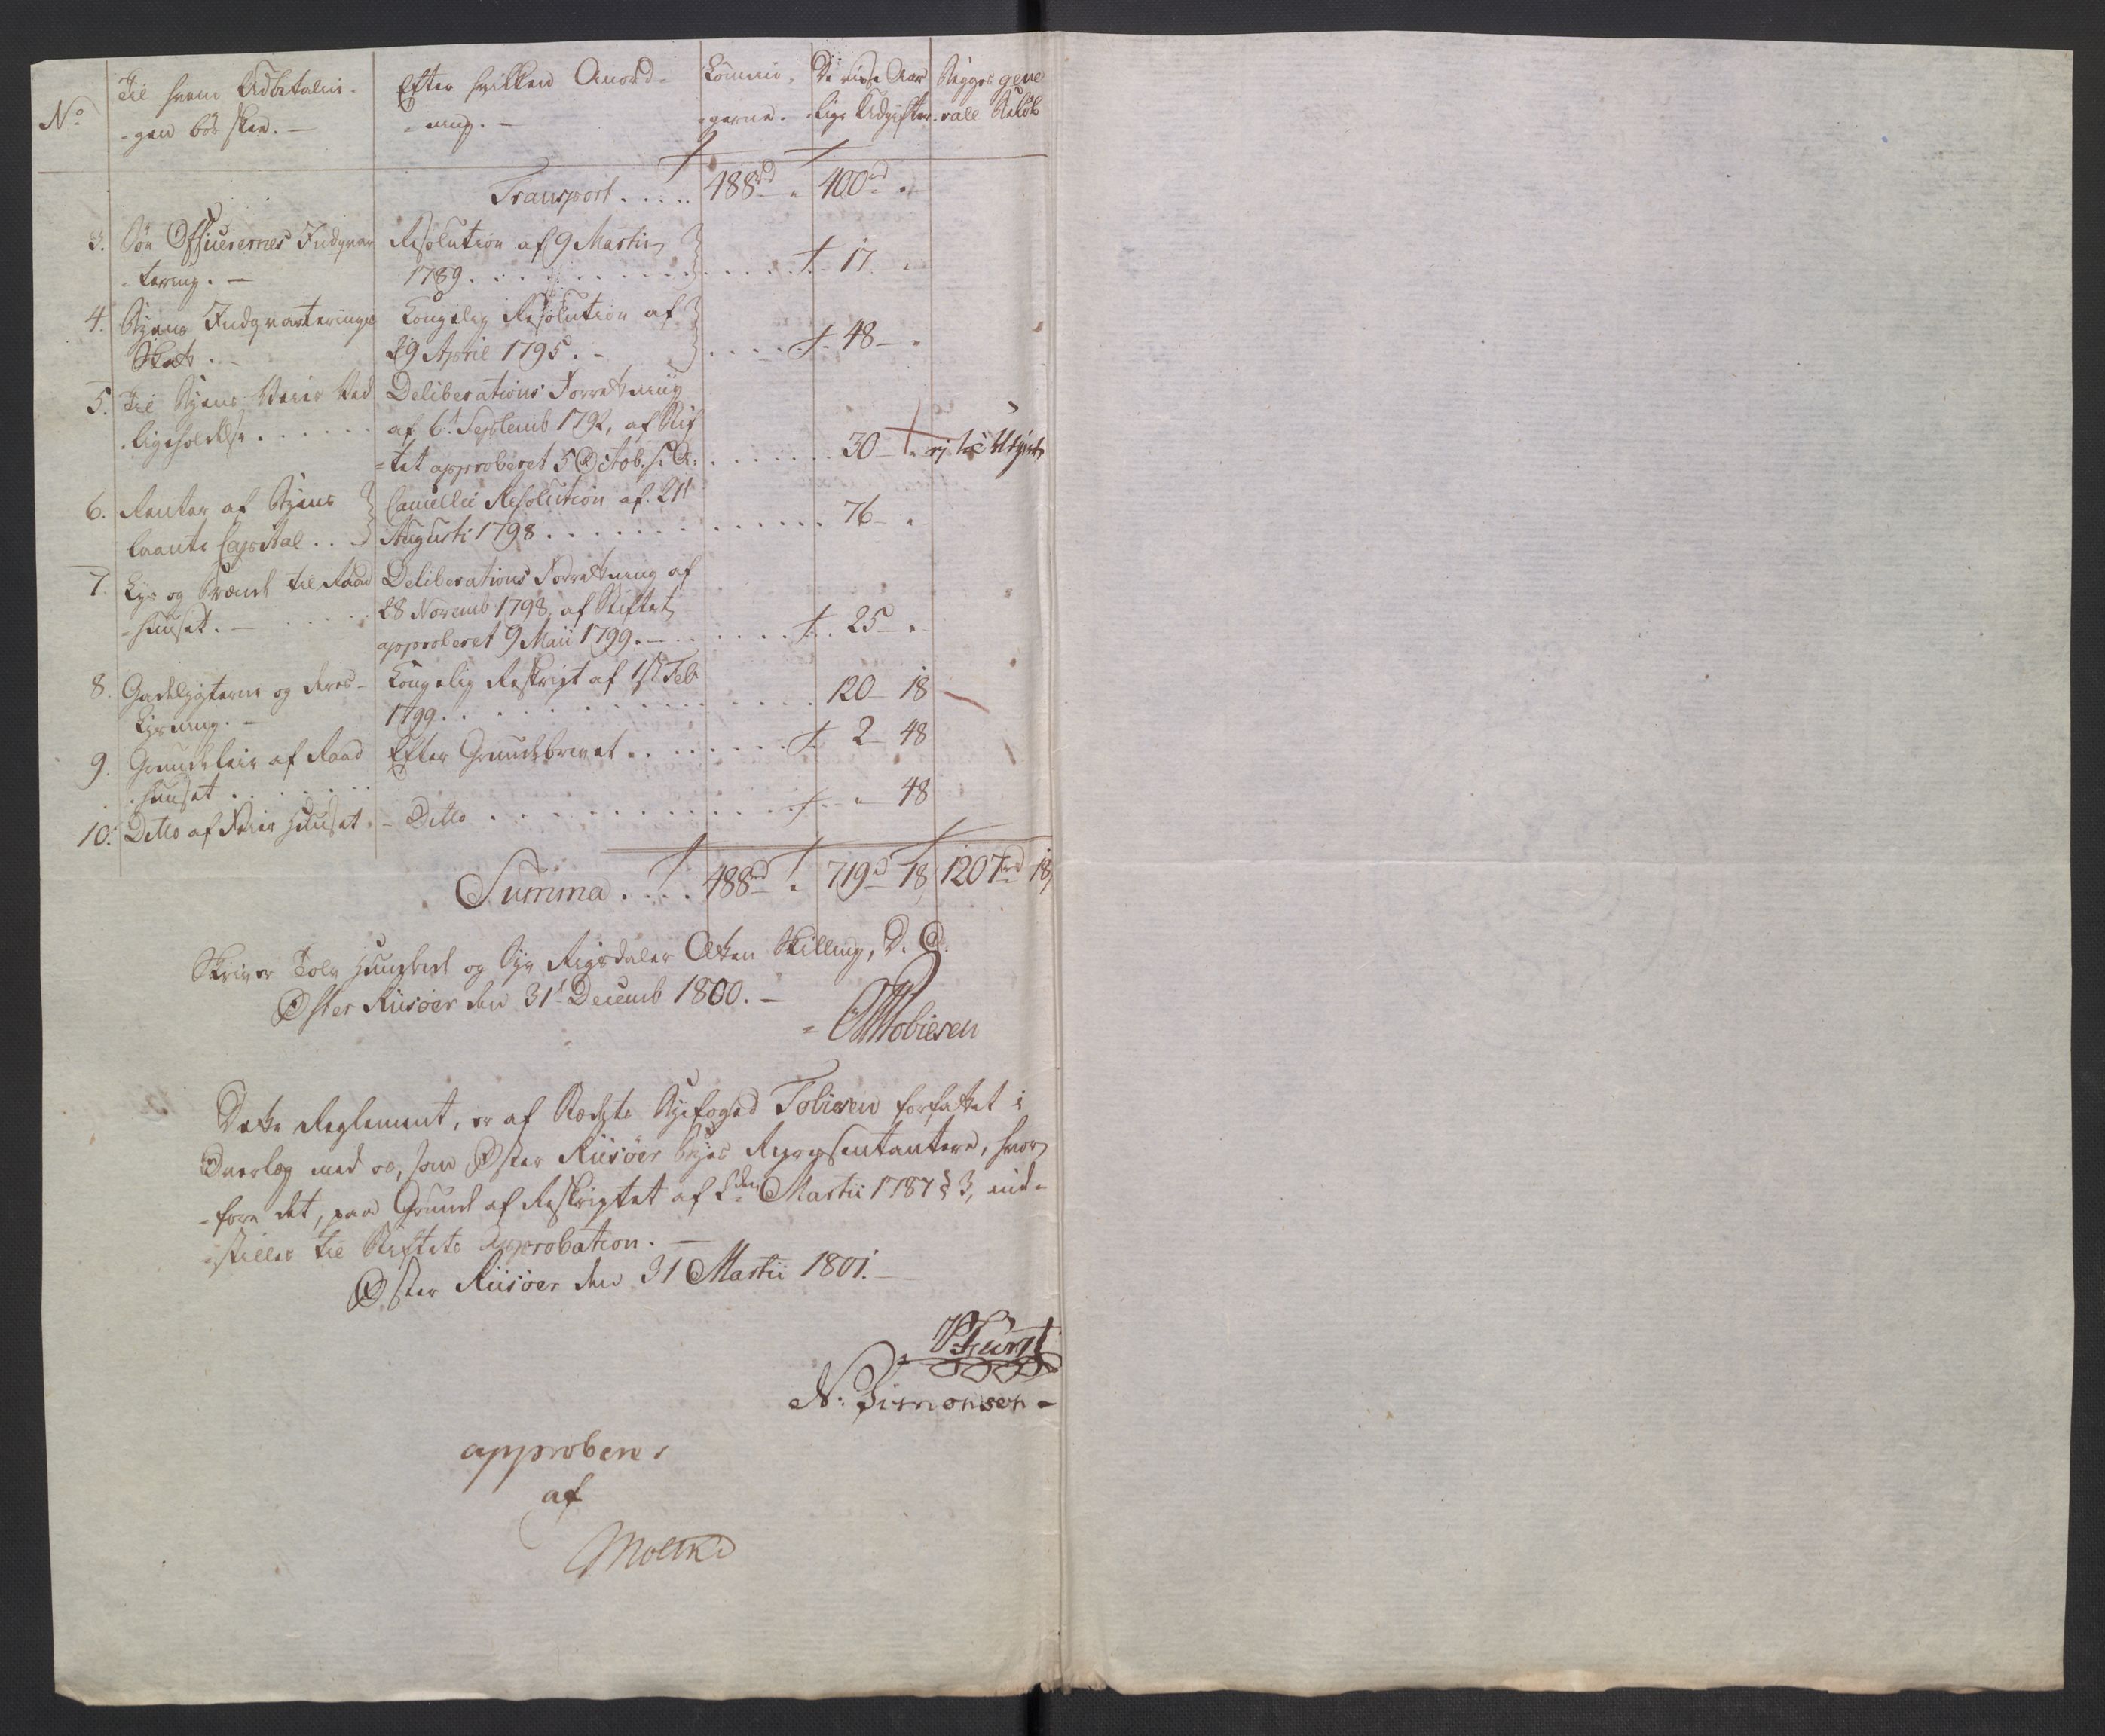 No
Til hvem Udbetalin-
-gen bör skee. —
Efter hvilken Anord-
-ning. —
Lönnin-
-gerne.
De visse Aar-
-lige Udgifter.
Bÿgges gene-
-rall Belöb
Transport . . . . . 488rd „ 400rd „
3. Söe Officerernes Indqvar-
-tering. —
Resolution af 9 Martii
1789 . . . . . . . . . . 17 „
4. Byens Indqvarterings
Skat. —
Kongelig Resolution af
29 April 1795. - . . . . 48 — „
5. Til Byens Veies Ved
-ligeholdelse . . . . . .
Deliberations Forretning
af 6t Septemb 1792, af Stif
-tet approberet 5 Octob. s: A: . . . . . . 30 — „
6. Renter af Byens
laante Capital . . .
Cancellie Resolution af 21t
Augusti 1798 . . . . . . . . . . 76 — „
7. Lys og Brænde til Raad
-huuset. — . . . . .
Deliberations Forretning af
28 Novemb 1798, af Stiftet
approberet 9 Maii 1799. — . . . . . . 25 — „
8. Gadelygterne og deres
Lysning. —
Kongelig Reskript af 1st Feb
1799 . . . . . . . . . . 120 — 18
9. Grundeleie af Raad
-huuset . . . . . . .
Efter Grundebrevet . . . . . . . 2 — 48
10. Ditto af Veier Huuset. - Ditto . . . . . . . . . . „ — 48
Summa . . . . 488rd „ 719rd 18 1207rd 18
Skriver Tolv Hundrede og Syv Rigsdaler Atten Skilling, D. C.
Øster Riisöer den 31t Decemb 1800. —
Tobiesen
Dette Reglement, er af Constituerede Byefoged Tobiesen forfattet i
Overlæg med os, som Øster Riisöer Byes Repræsentantere, hvor
-fore det, paa Grund af Reskriptet af 2den Martii 1787 § 3, ind-
-stilles til Stiftets Approbation. —
Øster Riisöer den 31 Martii 1801. —
Fürst
N: Simonsen -
approberes
af
Moltke